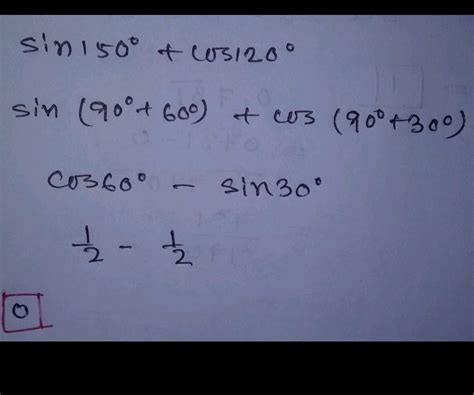 sin150° + cos120°
sin (90°+60°) + cos (90°+30°)
cos60° - sin30°
1/2 - 1/2
0